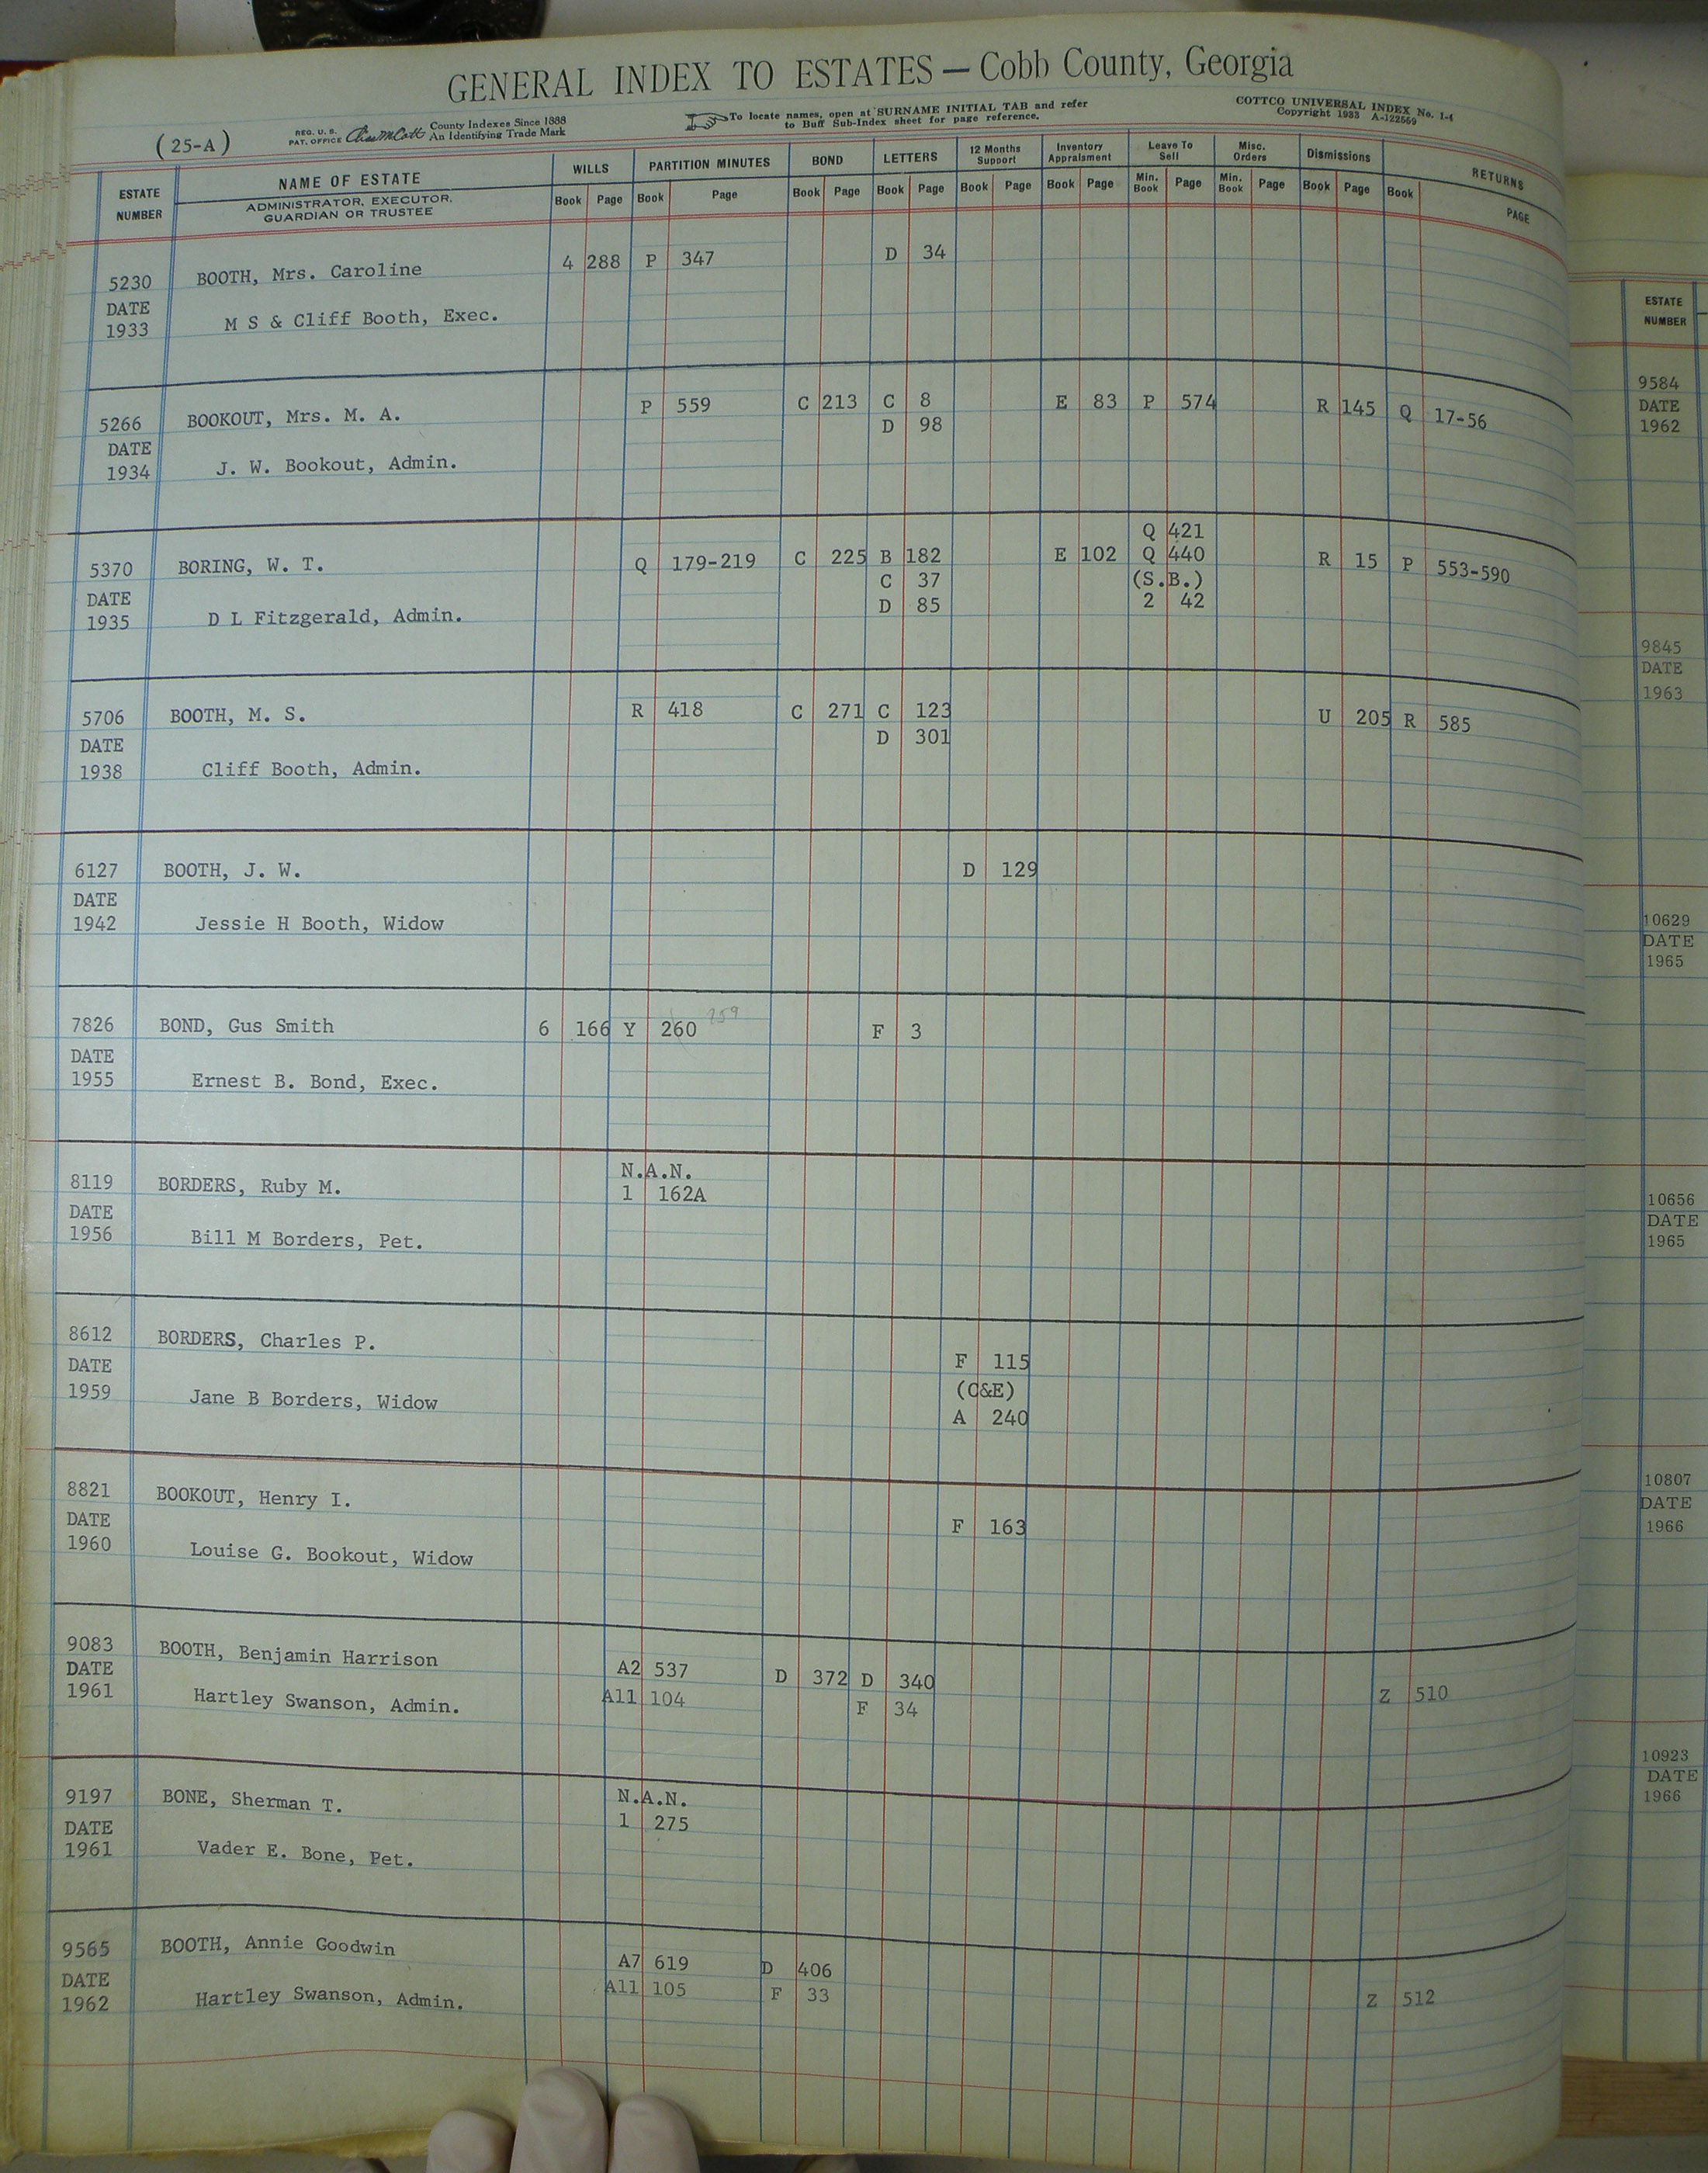 GENERAL INDEX TO ESTATES — Cobb County, Georgia
(25-A)
REG. U. S. PAT. OFFICE
County Indexes Since 1888
An Identifying Trade Mark
To locate names, open at SURNAME INITIAL TAB and refer
to Buff Sub-Index sheet for page reference.
COTTCO UNIVERSAL INDEX No. 1-4
Copyright 1933 A-122569
ESTATE NUMBER
NAME OF ESTATE
ADMINISTRATOR, EXECUTOR,
GUARDIAN OR TRUSTEE
WILLS PARTITION MINUTES BOND LETTERS 12 Months Support Inventory Appraisment Leave To Sell Misc. Orders Dismissions RETURNS
Book Page Book Page Book Page Book Page Book Page Book Page Min. Book Page Min. Book Page Book Page Book PAGE
5230 BOOTH, Mrs. Caroline 4 288 P 347 D 34
DATE
1933 M S & Cliff Booth, Exec.
5266 BOOKOUT, Mrs. M. A. P 559 C 213 C 8 E 83 P 574 R 145 Q 17-56
D 98
DATE
1934 J. W. Bookout, Admin.
Q 421
5370 BORING, W. T. Q 179-219 C 225 B 182 E 102 Q 440 R 15 P 553-590
C 37 (S.B.)
DATE D 85 2 42
1935 D L Fitzgerald, Admin.
5706 BOOTH, M. S. R 418 C 271 C 123 U 205 R 585
DATE D 301
1938 Cliff Booth, Admin.
6127 BOOTH, J. W. D 129
DATE
1942 Jessie H Booth, Widow
7826 BOND, Gus Smith 6 166 Y 260 259 F 3
DATE
1955 Ernest B. Bond, Exec.
N.A.N.
8119 BORDERS, Ruby M. 1 162A
DATE
1956 Bill M Borders, Pet.
8612 BORDERS, Charles P.
DATE F 115
1959 Jane B Borders, Widow (C&E)
A 240
8821 BOOKOUT, Henry I.
DATE F 163
1960 Louise G. Bookout, Widow
9083 BOOTH, Benjamin Harrison
DATE A2 537 D 372 D 340
1961 Hartley Swanson, Admin. A11 104 F 34 Z 510
9197 BONE, Sherman T. N.A.N.
DATE 1 275
1961 Vader E. Bone, Pet.
9565 BOOTH, Annie Goodwin
DATE A7 619 D 406
1962 Hartley Swanson, Admin. A11 105 F 33 Z 512
ESTATE
NUMBER
9584
DATE
1962
9845
DATE
1963
10629
DATE
1965
10656
DATE
1965
10807
DATE
1966
10923
DATE
1966